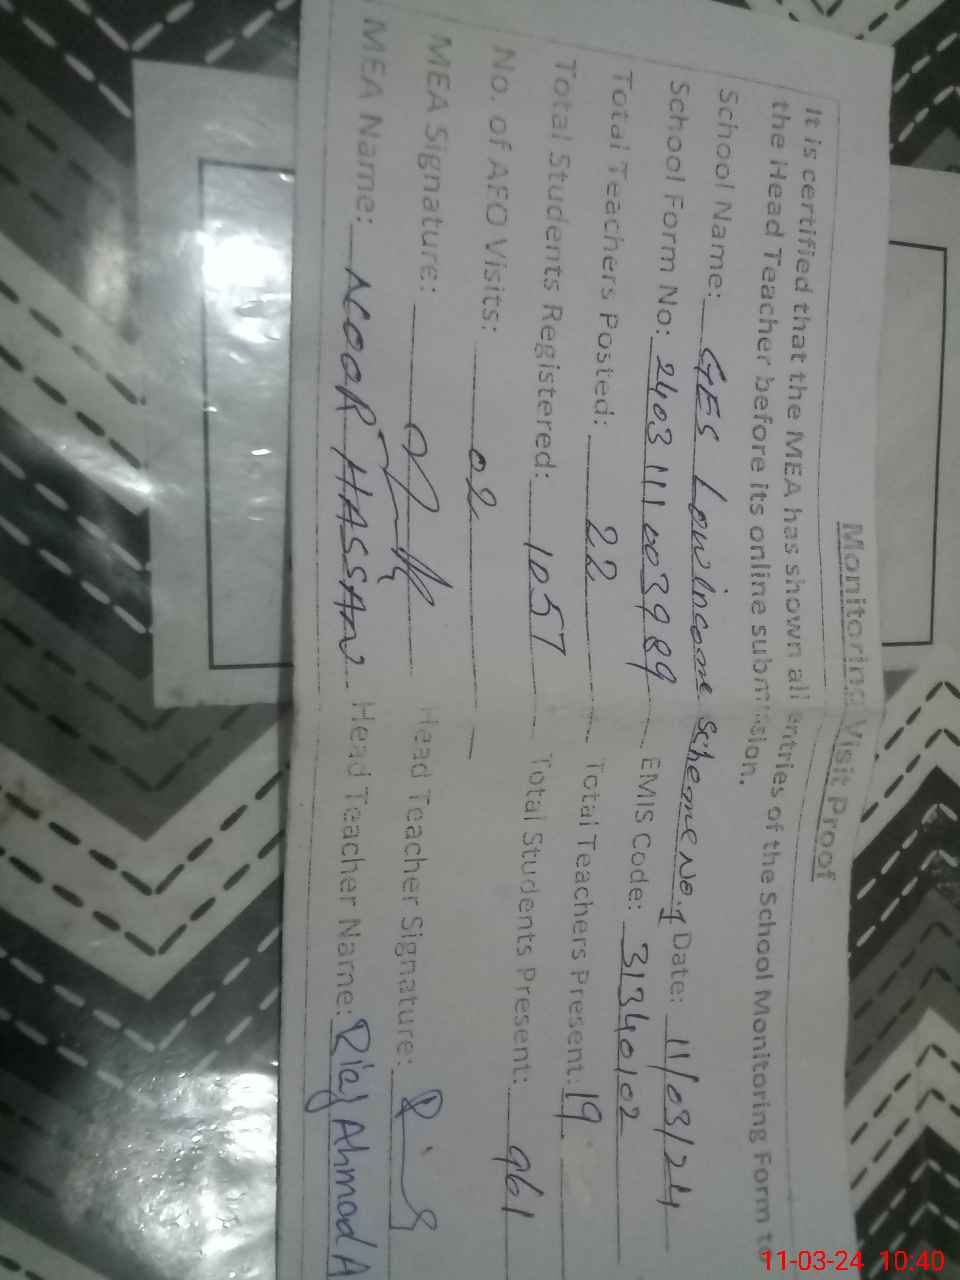 Monitoring Visit Proof
It is certified that the MEA has shown all entries of the School Monitoring Form to
the Head Teacher before its online submission.
School Name: GES Low Income Scheme No.1 Date: 11/03/24
School Form No: 2403111003989 EMIS Code: 31340102
Total Teachers Posted: 22 Total Teachers Present: 19
Total Students Registered: 1057 Total Students Present: 961
No. of AEO Visits: 02
MEA Signature: Head Teacher Signature:
MEA Name: NOOR HASSAN Head Teacher Name: Riaz Ahmad A
11-03-24 10:40